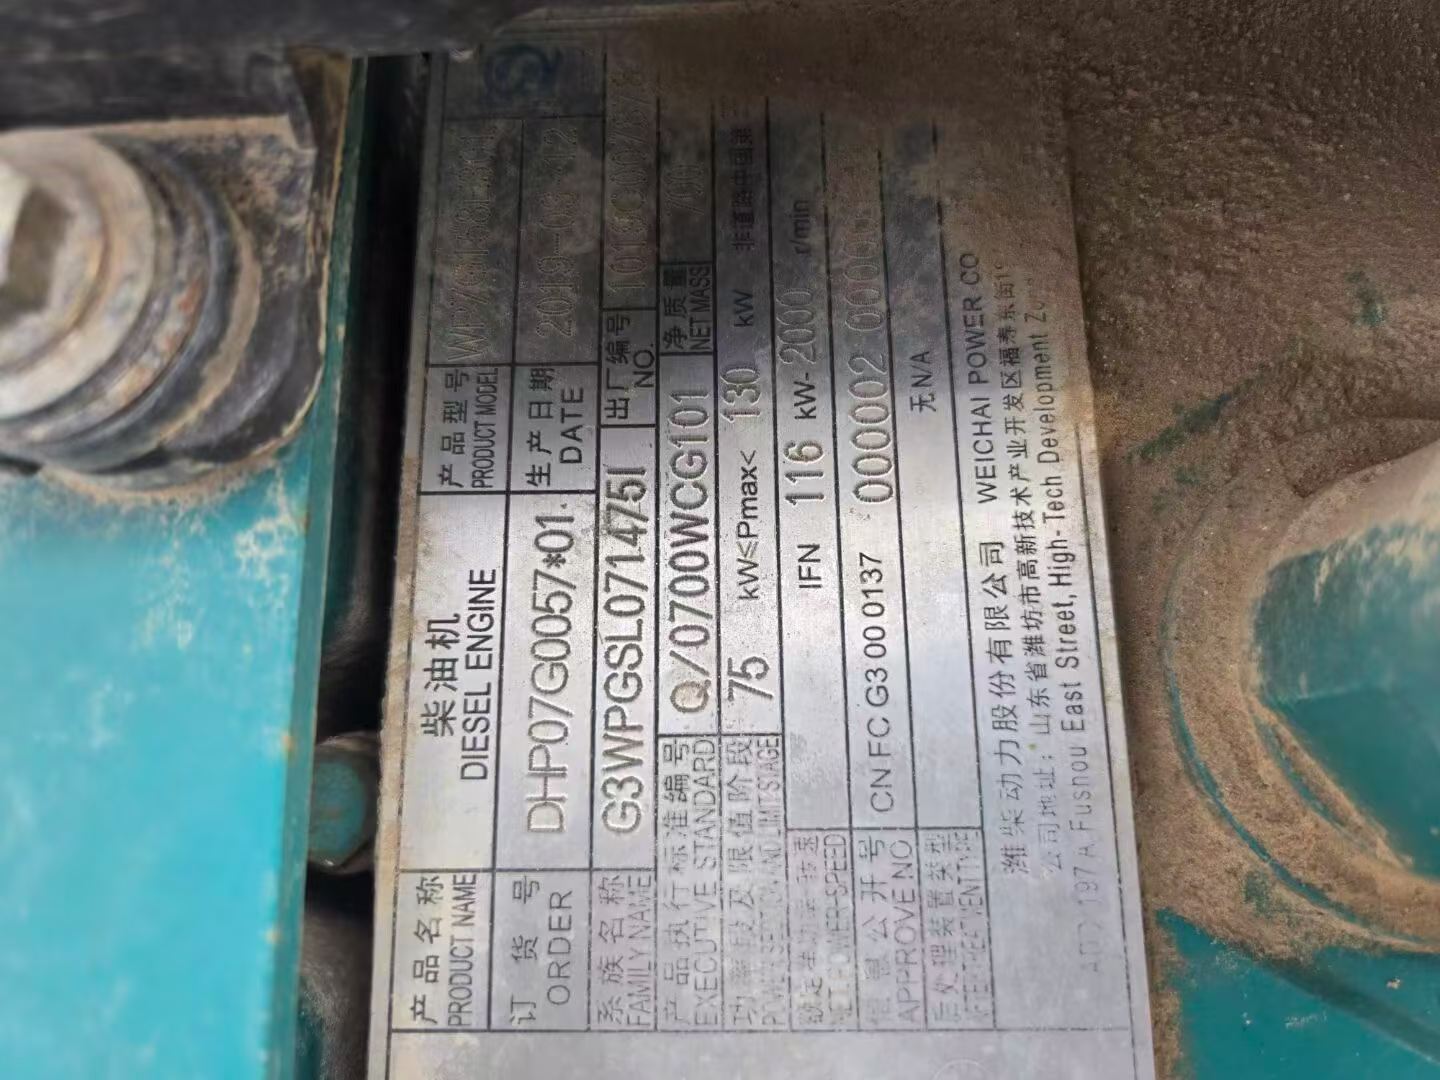 产品名称 柴油机 产品型号
PRODUCT NAME DIESEL ENGINE PRODUCT MODEL
订货号 DHP07G0057*01 生产日期 2019-03-12
ORDER DATE
系族名称 G3WPGSL0714751 出厂编号
FAMILY NAME NO.
产品执行标准编号 Q/0700WCG101 净质量 700
EXECUTIVE STANDARD NET MASS
功率段及限值阶段 75 kW≤Pmax< 130 kW 非道路中国第三
POWER SECTION AND LIMIT STAGE
额定净功率/转速 IFN 116 kW- 2000 r/min
NET POWER/SPEED
信息公开号 CN FC G3 00 0137 000002 00000
APPROVE NO
后处理装置类型 无N/A
AFTERTREATMENT TYPE
潍柴动力股份有限公司 WEICHAI POWER CO
公司地址:山东省潍坊市高新技术产业开发区福寿东街1
ADD 197A Fushou East Street, High-Tech Development